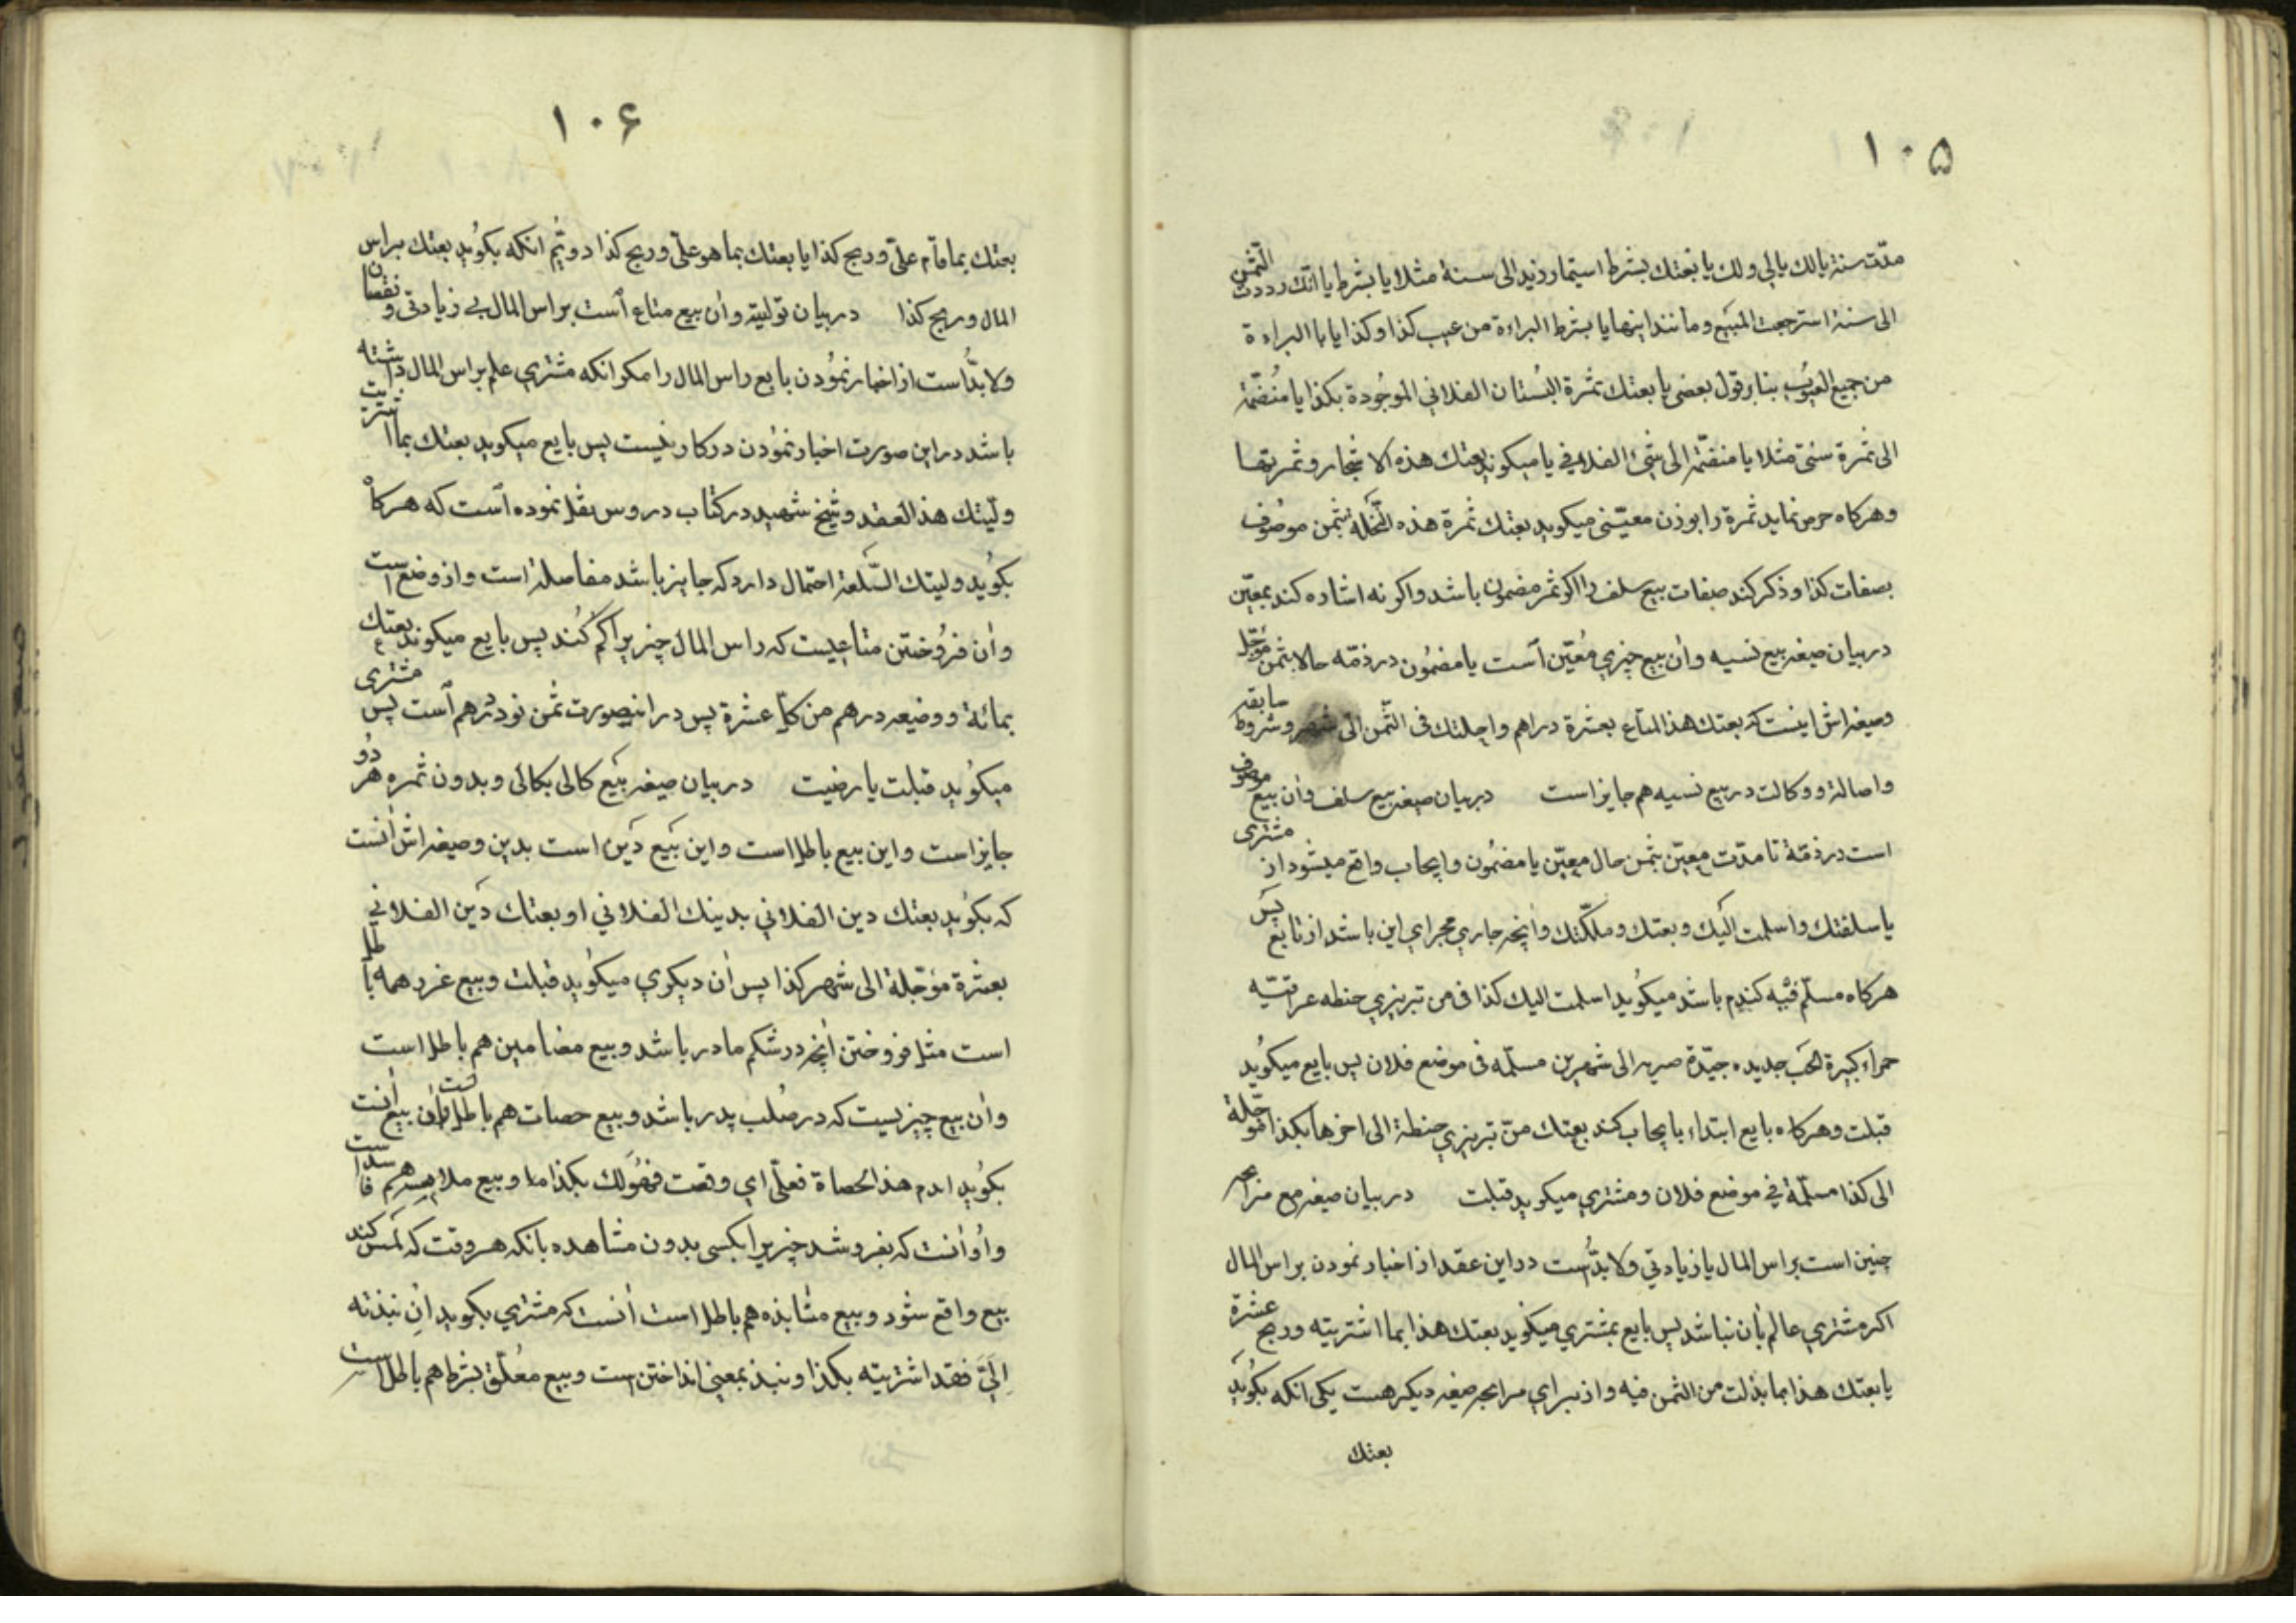 ۱۰۵
مدّت سنة یا لك یا لی ولك یا بعتك بشرط استیمار زید الی سنة مثلا یا بشرط یا انّك رددت الثّمن
الی سنة استرجعت المبیع ومانند اینها یا بشرط البراءة من عیب كذا وكذا یا با البراءة
من جمیع العیوب بنابر قول بعضی یا بعتك ثمرة البُستان الفلانی الموجُودة بكذا یا مُنضّمة
الی ثمرة سنتی مثلا یا منضمّة الی شیء الفلانی یا میكوید بعتك هذه الاشجار وثمرتها
وهركاه خرص نماید ثمرة را بوزن معیّنی میكوید بعتك ثمرة هذه النّخلة بثمن موصُوف
بصفات كذا وذكر كند صفات بیع سلف را اكر ثمر مضمون باشد واكر نه اشاره كند بمعیّن
در بیان صیغه بیع نسیه وآن بیع چیزی مُعیّن است یا مضمُون در ذمّه حالا بثمن مؤجّل
وصیغه اش اینست كه بعتك هذا المتاع بعشرة دراهم واجلتك فی الثّمن الی شهر وشروط سابقه
واصالة ووكالت در بیع نسیه هم جایز است در بیان صیغه بیع سلف وآن بیع موصوف
است در ذمّة تا مدّت معیّن بثمن حال معیّن یا مضمُون وایجاب واقع میشود از مشتری
یا سلفتك واسلمت الیك وبعتك وملّكتك وآنچه جاری مجرای این باشد از تابع پس
هركاه مسلّم فیه كندم باشد میكوید اسلمت الیك كذا فی من تبریزی حنطه عراقیّه
حمراء كبیرة الحَب جدیده جیّدة صربه الی شهرین مسلّمه فی موضع فلان پس بایع میكوید
قبلت وهركاه بایع ابتداء بایجاب كند بعتك منّ تبریزی حنطة الی اخرها بكذا مؤجّلة
الی كذا مسلّمة فی موضع فلان ومشتری میكوید قبلت در بیان صیغه بیع مرابحه
چنین است براس المال یا زیادتی ولابدّ است در این عقد از اخبار نمودن براس المال
اكر مشتری عالم بآن نباشد پس بایع بمشتری میكوید بعتك هذا بما اشتریته وربح عشرة
یا بعتك هذا بما بذلت من الثمن فیه واز برای مرابحه صیغه دیكر هست یكی آنكه بكوید
بعتك
۱۰۶
بعتك بما قام علیّ وربح كذا یا بعتك بما هو علیّ وربح كذا دویُّم آنكه بكوید بعتك براس
المال وربح كذا در بیان تولیة وآن بیع متاع است براس المال بی زیادتی ونقصان
ولابدّ است از اخبار نمودن بایع راس المال را مكر آنكه مشتری علم براس المال داشته
باشد در این صورت اخبار نمودن دركار نیست پس بایع میكوید بعتك بما اشتریت
ولّیتك هذا العقد وشیخ شهید در كتاب دروس نقل نموده است كه هركاه
بكوید ولیتك السّلعة احتمال دارد كه جایز باشد مفاصله است واز وضع است
وآن فروختن متاعیست كه راس المال چیز برا كم كند پس بایع میكوید بعتك
بمائة ووضیعه درهم من كلّ عشرة پس در اینصورت ثمن نود درهم است پس مشتری
میكوید قبلت یا رضیت در بیان صیغه بیع كالی بكالی وبدون ثمره هر دُو
جایز است واین بیع باطل است واین بَیع دَین است بدین وصیغه اش آنست
كه بكوید بعتك دین الفلانی بدینك الفلانی او بعتك دَین الفلانی
بعشرة مؤجّلة الی شهر كذا پس آن دیكری میكوید قبلت وبیع غرر همه باطل
است مثل فروختن آنچه در شكم مادر باشد وبیع مضامین هم باطل است
وآن بیع چیزیست كه در صُلب پدر باشد وبیع حصات هم باطل است وآن بیع آنست
بكوید ارم هذا الحصاة فعلیّ ای وقعت فهُو لك بكذا وبیع ملامسه هم فاسد است
واُو آنست كه بفروشد چیز برا بكسی بدون مشاهده بآنكه هر وقت كه لَمس كند
بیع واقع شود وبیع منابذه هم باطل است آنست كه مشتری بكوید ان نبذته
اِلَیَّ فقد اشتریته بكذا ونبذ بمعنی انداختن است وبیع مُعلّق بشرط هم باطل است